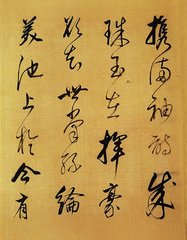 携滿袖詩成
珠玉在揮毫
欲知世掌絲綸
美池上於今有